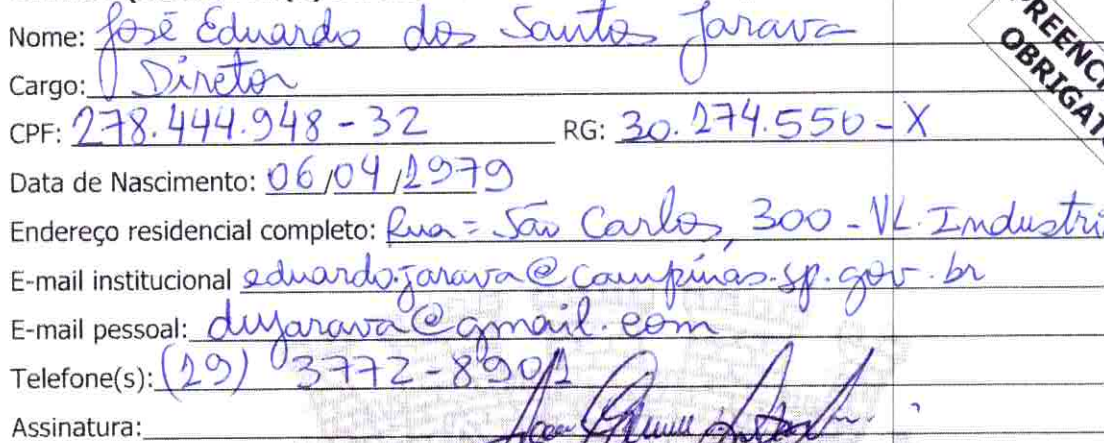 Nome: José Eduardo dos Santos Jarava
Cargo: Diretor
CPF: 278.444.948-32 RG: 30.274.550-X
Data de Nascimento: 06/04/1979
Endereço residencial completo: Rua = São Carlos, 300 - VL. Industri
E-mail institucional eduardo.jarava@campinas.sp.gov.br
E-mail pessoal: dujarava@gmail.com
Telefone(s): (19) 3772-8901
Assinatura:
REENCI
OBRIGAT